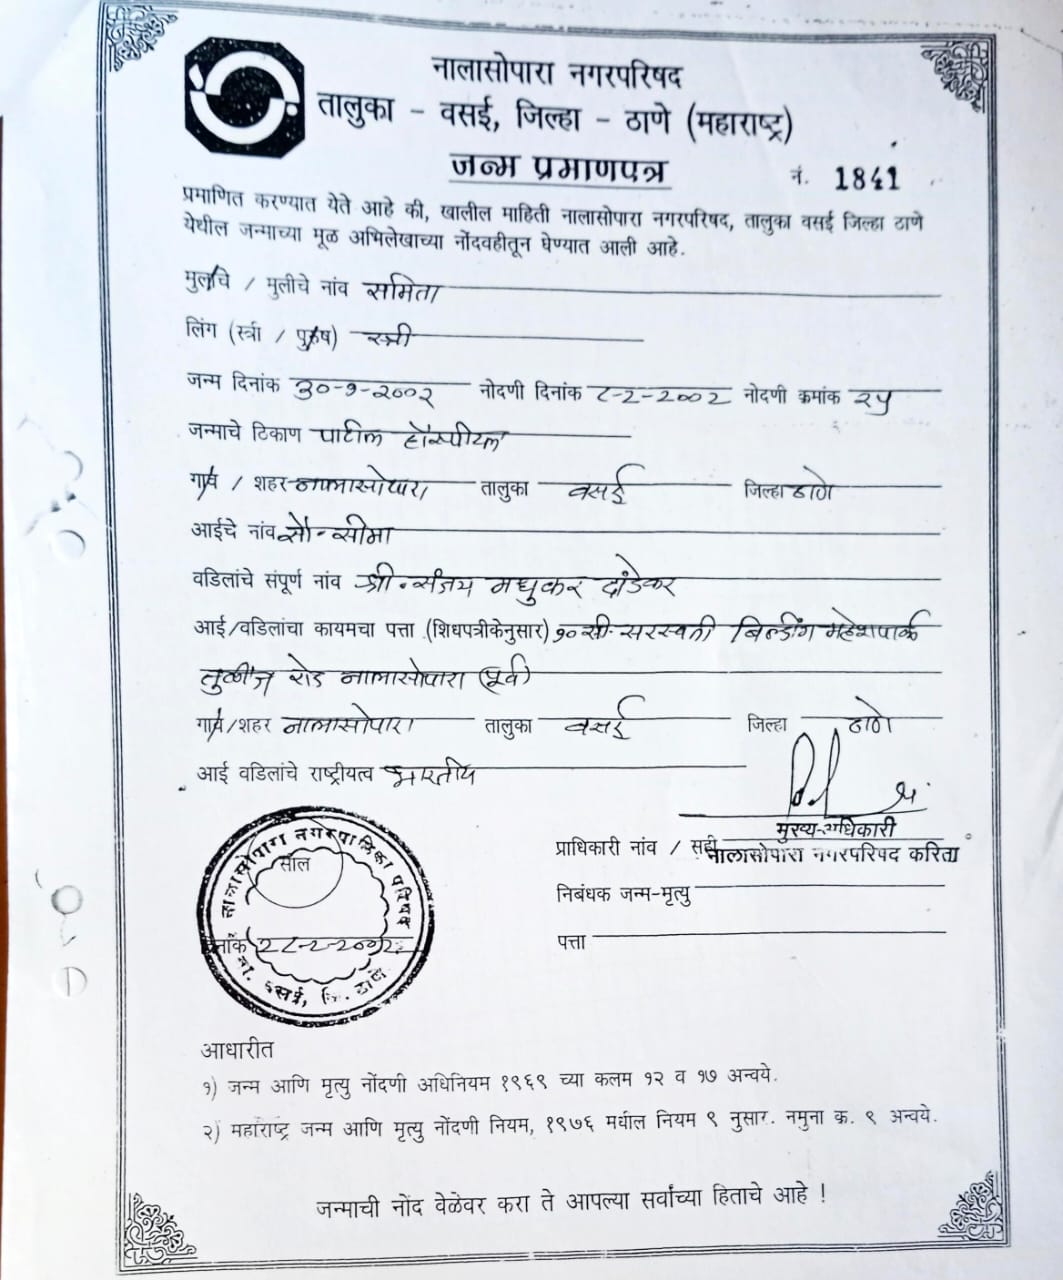 नालासोपारा नगरपरिषद
तालुका - वसई, जिल्हा - ठाणे (महाराष्ट्र)
जन्म प्रमाणपत्र
नं. 1841
प्रमाणित करण्यात येते आहे की, खालील माहिती नालासोपारा नगरपरिषद, तालुका वसई जिल्हा ठाणे
येथील जन्माच्या मूळ अभिलेखाच्या नोंदवहीतून घेण्यात आली आहे.
मुलाचे / मुलीचे नांव समिता
लिंग (स्त्री / पुरुष) स्त्री
जन्म दिनांक ३०-१-२००२ नोदणी दिनांक ८-२-२००२ नोदणी क्रमांक २५
जन्माचे ठिकाण पाटील हॉस्पीटल
गाव / शहर नालासोपारा तालुका वसई जिल्हा ठाणे
आईचे नांव सौ. सीमा
वडिलांचे संपूर्ण नांव श्री. संजय मधुकर दांडेकर
आई/वडिलांचा कायमचा पत्ता (शिधपत्रीकेनुसार) १० सी. सरस्वती बिल्डींग महेशपार्क
तुळींज रोड नालासोपारा (पूर्व)
गाव/शहर नालासोपारा तालुका वसई जिल्हा ठाणे
आई वडिलांचे राष्ट्रीयत्व भारतीय
मुख्य-अधिकारी
प्राधिकारी नांव / सही नालासोपारा नगरपरिषद करिता
निबंधक जन्म-मृत्यु
पत्ता
नालासोपारा नगरपालिका परिषद
सील
दिनांक २८-२-२००२
ता. वसई, जि. ठाणे
आधारीत
१) जन्म आणि मृत्यु नोंदणी अधिनियम १९६९ च्या कलम १२ व १७ अन्वये.
२) महाराष्ट्र जन्म आणि मृत्यु नोंदणी नियम, १९७६ मधील नियम ९ नुसार. नमुना क्र. ९ अन्वये.
जन्माची नोंद वेळेवर करा ते आपल्या सर्वांच्या हिताचे आहे !